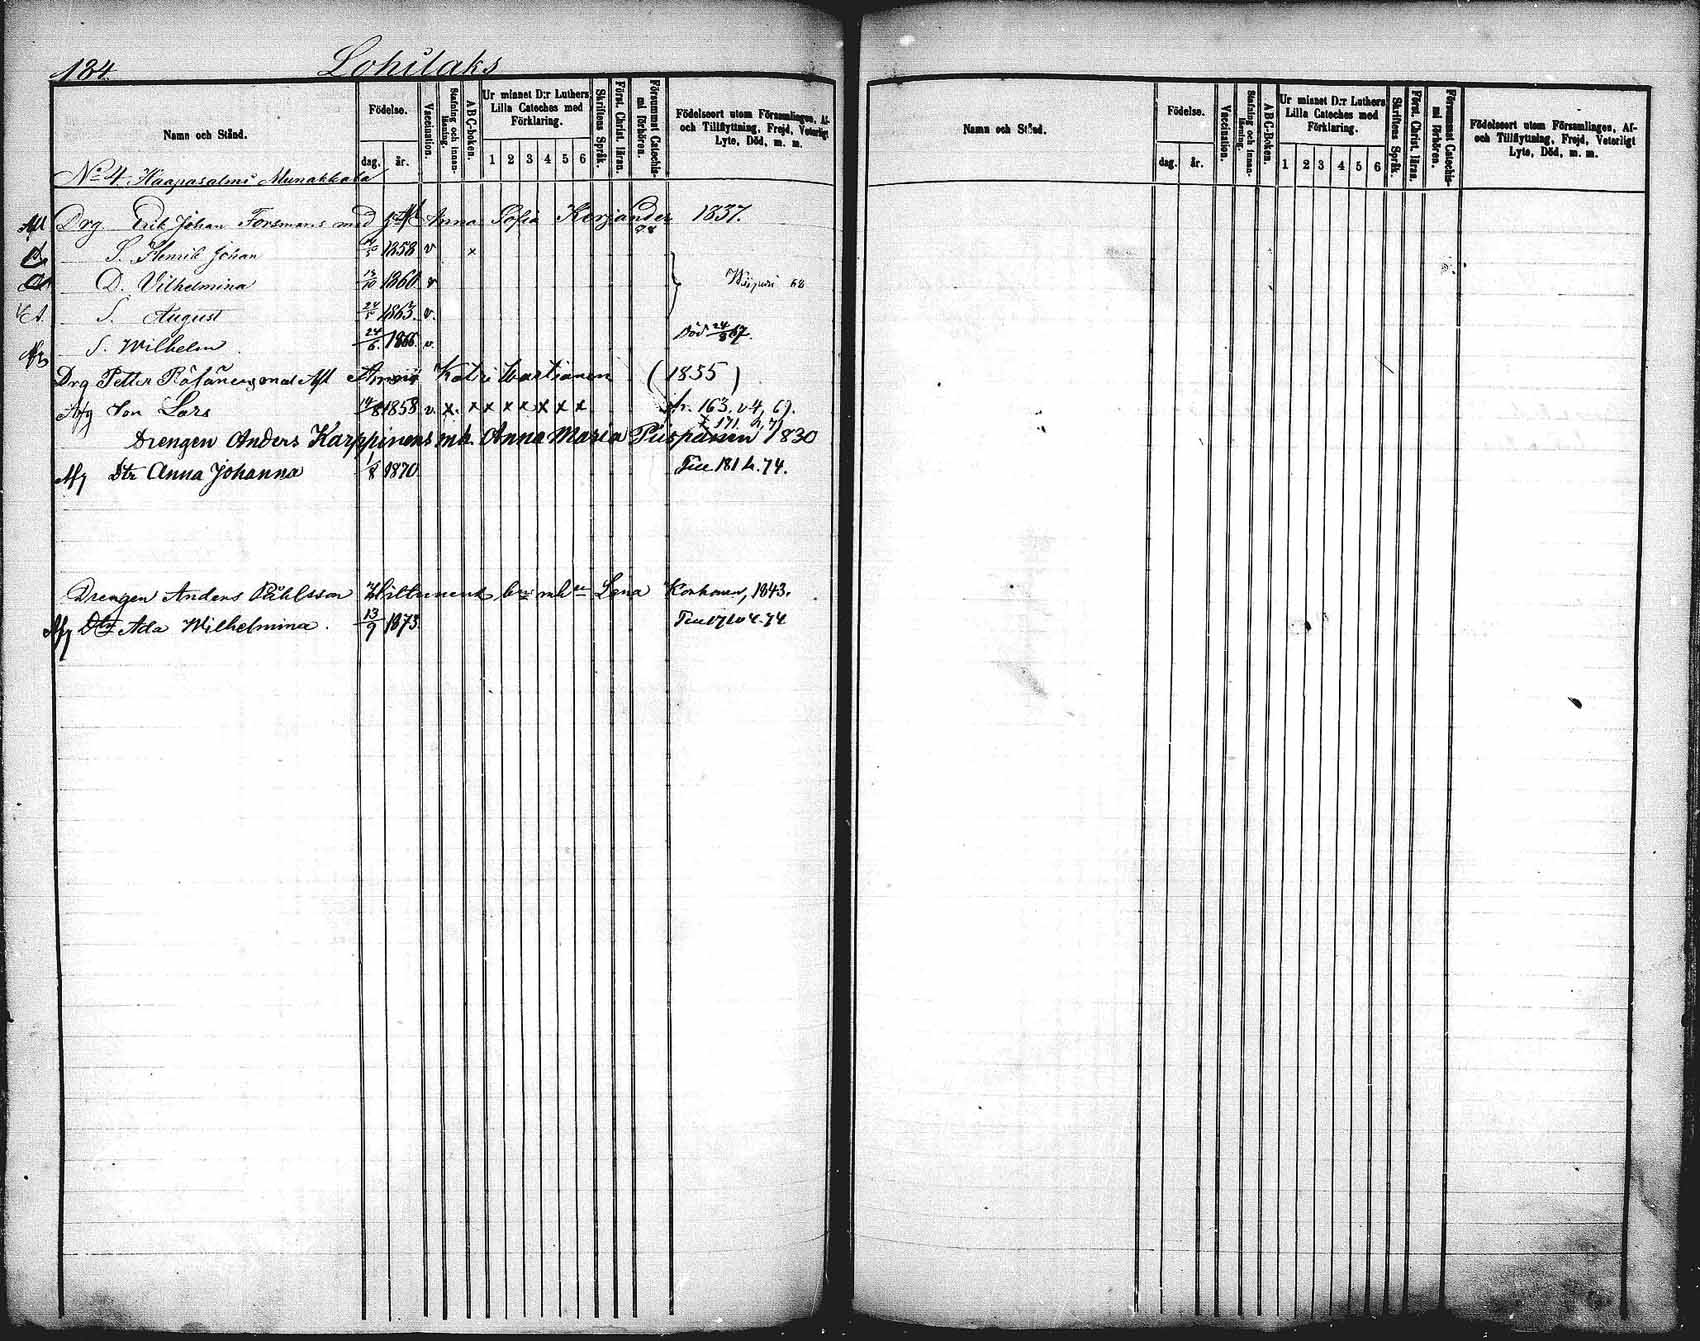 184. Lohilaks
Namn och Stånd.
Födelse.
dag. år.
Vaccination.
Stafning och innanläsning.
ABC-boken.
Ur minnet D:r Luthers Lilla Cateches med Förklaring.
1 2 3 4 5 6
Skriftens Språk.
Först. Christ. läran.
Försummat Catechismi förhören.
Födelseort utom Församlingen, Af- och Tillflyttning, Frejd, Veterligt Lyte, Död, m. m.
No 4 Haapasalmi Munakkala
Drg Erik Johan Forsmans med Anna Sofia Kerjander 1837.
S. Henrik Johan 1858 v x
D. Vilhelmina 13/10 1860 v Wiipuri 68
S. August 24/5 1863 v.
S. Wilhelm 24/6 1866 v. Död 24/8 67.
Drg Petter Räsänens med Katri Wartianen (1855)
Afg Son Lars 14/8 1858 v. x. x x x x x x x fr. 163. v4, 69.
171. h, 71
Drengen Anders Karppinens mh. Anna Maria Puspanen 1830
Afg Dtr Anna Johanna 1/8 1870 Till 181 h. 74.
Drengen Anders Påhlsson Hiltunens mh Lena Korhonen, 1843.
Afg Dtr Ada Wilhelmina. 13/9 1873 Till 171 v 4. 74
Namn och Stånd.
Födelse.
dag. år.
Vaccination.
Stafning och innanläsning.
ABC-boken.
Ur minnet D:r Luthers Lilla Cateches med Förklaring.
1 2 3 4 5 6
Skriftens Språk.
Först. Christ. läran.
Försummat Catechismi förhören.
Födelseort utom Församlingen, Af- och Tillflyttning, Frejd, Veterligt Lyte, Död, m. m.